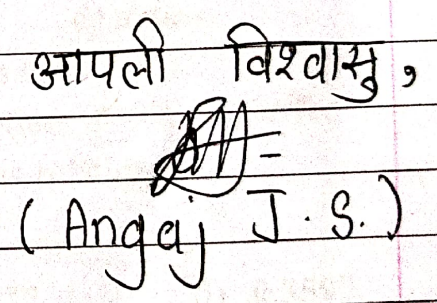 आपली विश्वासु,
(Angaj J. S.)